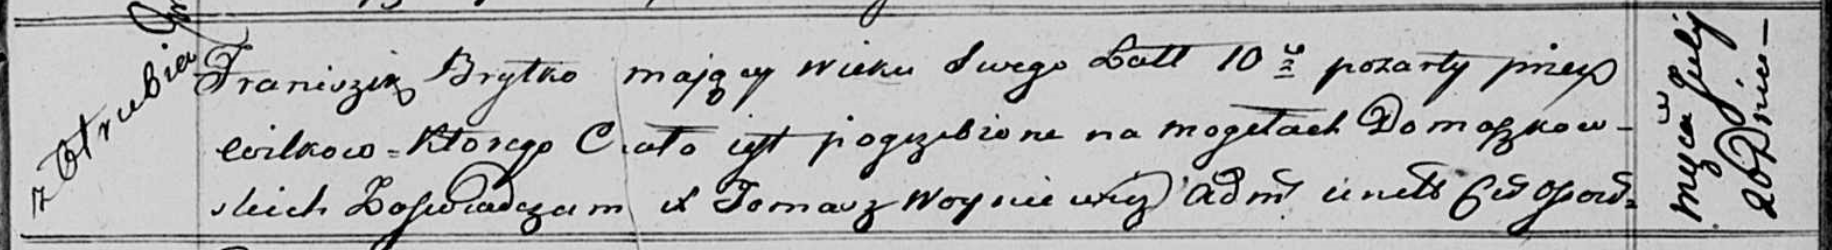 z Otrubia
Franiszek Brytko mający wieku Swego Latt 10 pozarty przez
wilkow = Ktorego Ciało iest pogrzebione na mogełach Domaszkow-
skich Zaswiadczam X Tomasz Woyniewicz Adm
mca July
26 Dnia -